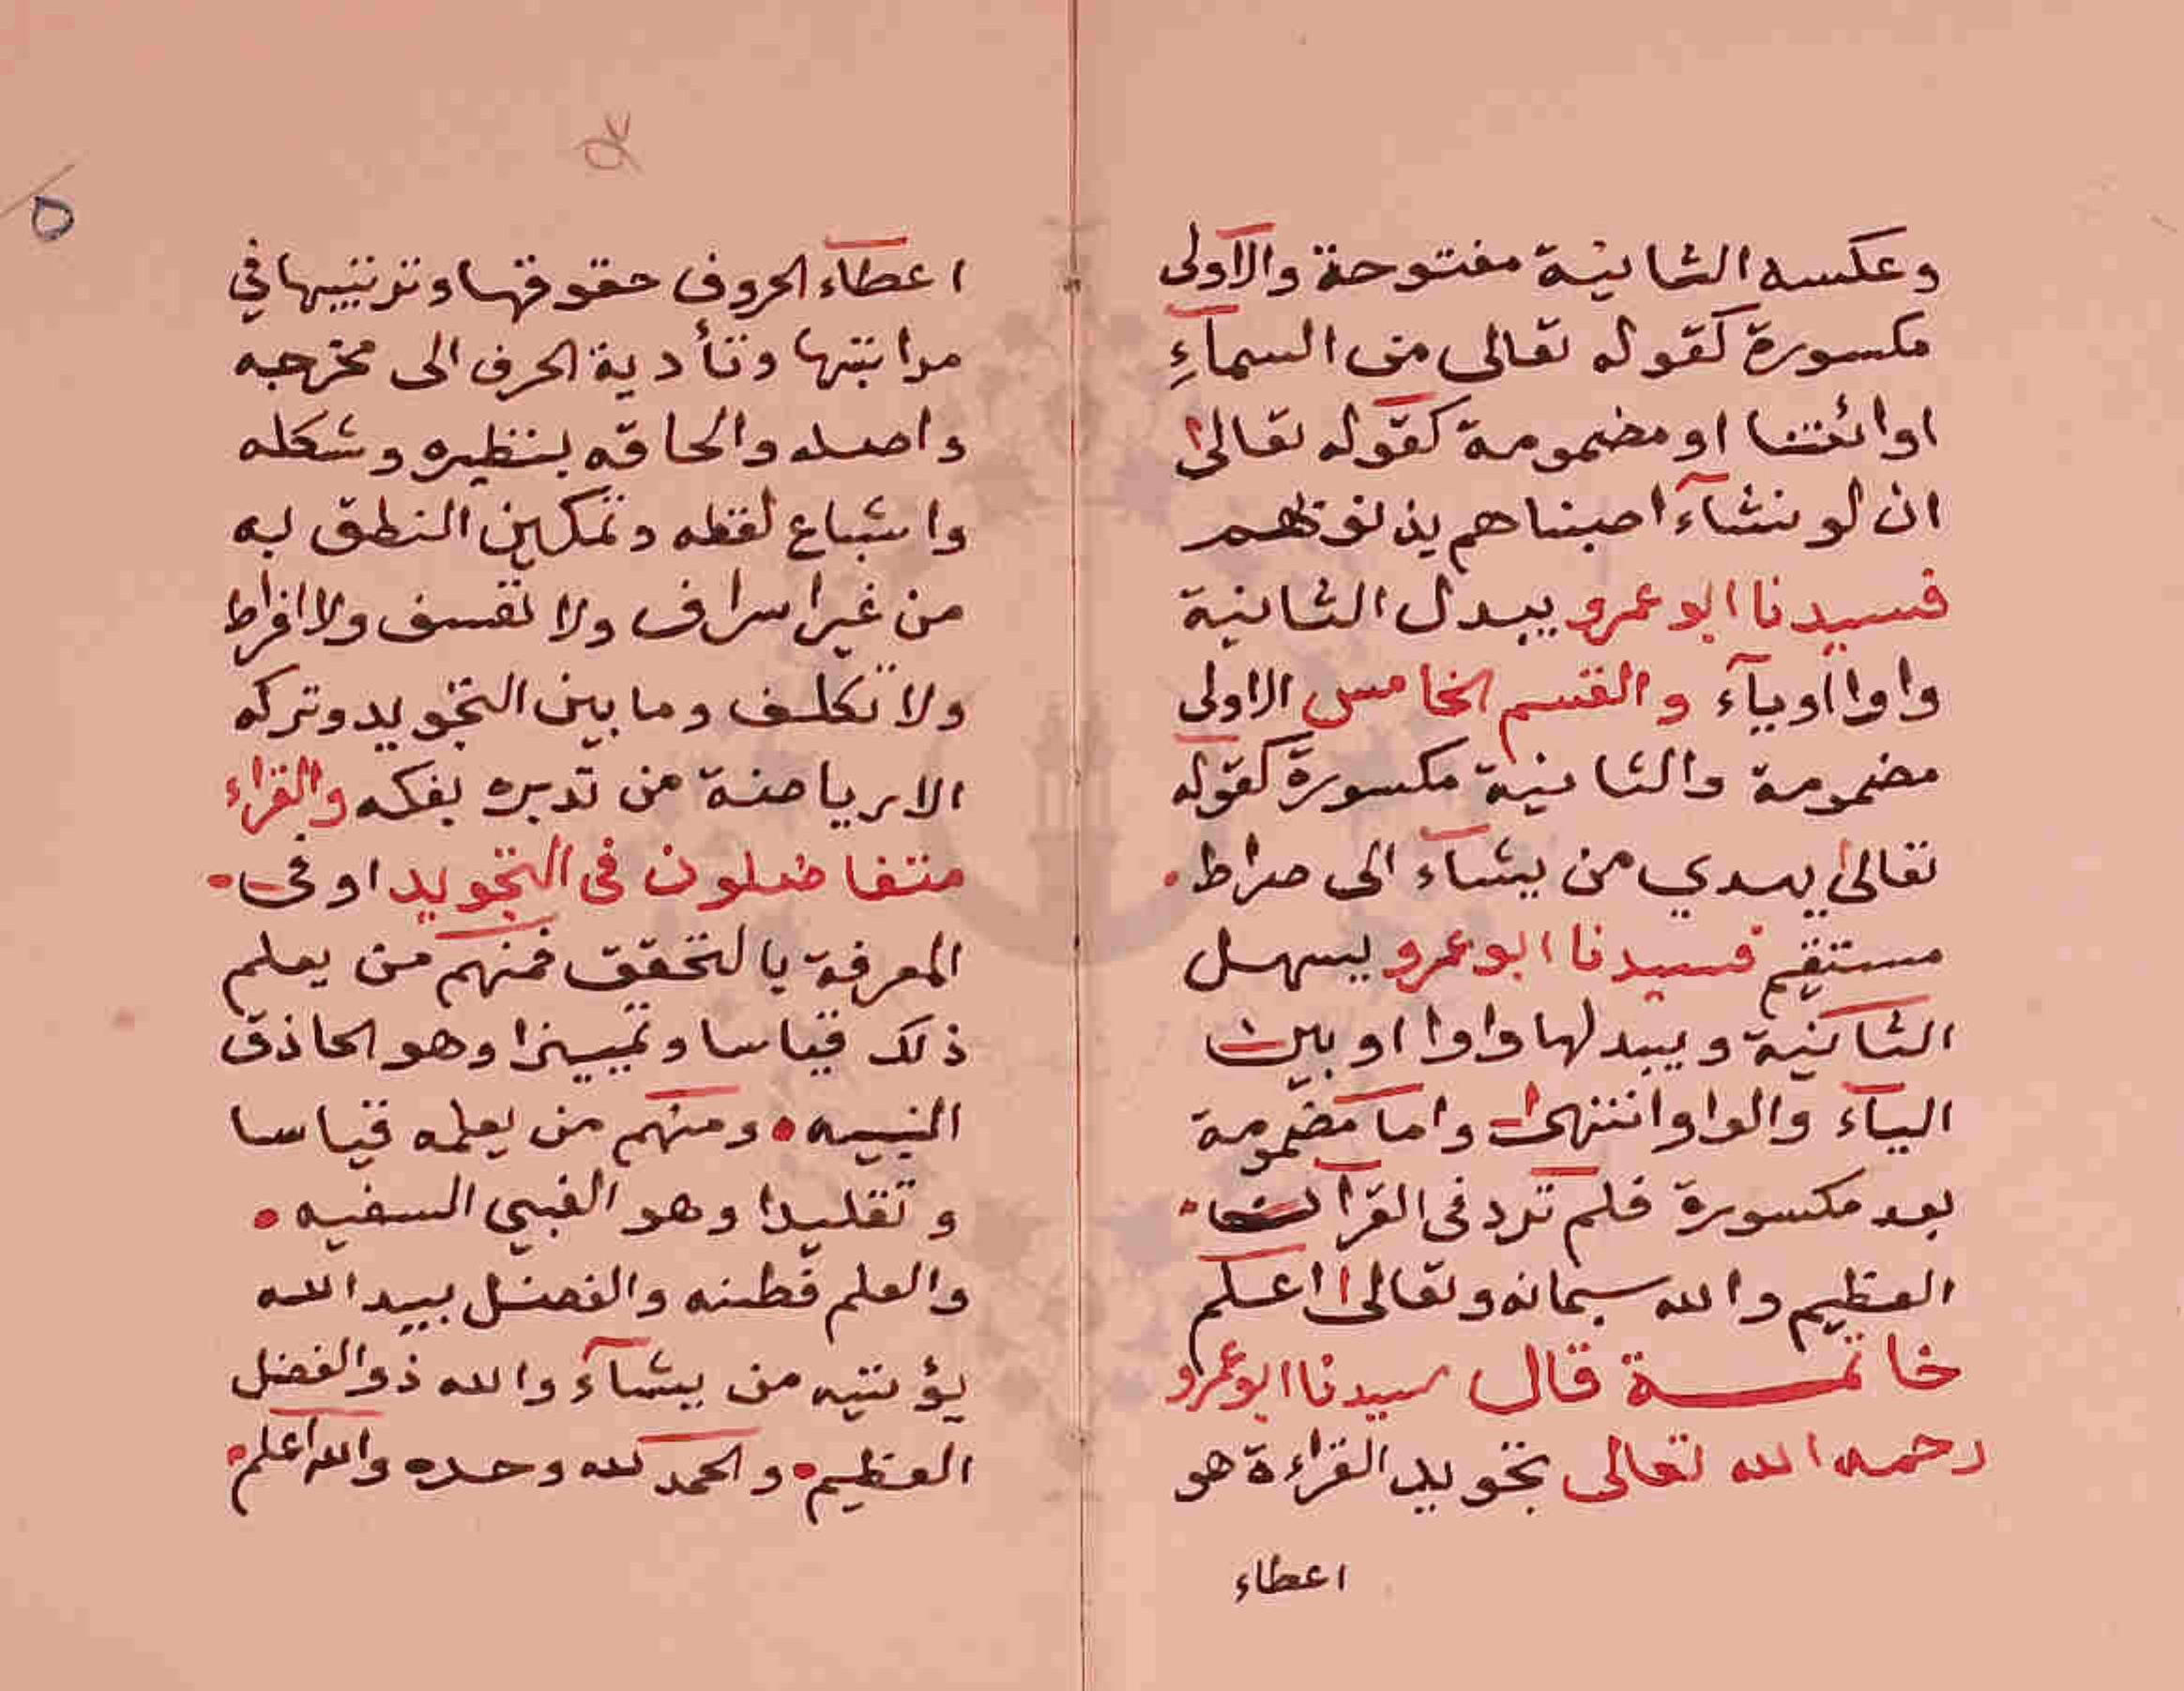 وعكسه الثانية مفتوحة والاولى
مكسورة كقوله تعالى من السمآءِ
اوائتنا او مضمومة كقوله تعالى
ان لو نشآء اصبناهم بذنوبهم
فسيدنا ابو عمرو يبدل الثانية
واوا اوياء والقسم الخامس الاولى
مضمومة والثانية مكسورة كقوله
تعالى يهدي من يشآء الى صراط
مستقيم فسيدنا ابو عمرو يسهل
الثانية ويبدلها واوا او بين
اليآء والواو انتهى واما مضمومة
بعد مكسورة فلم ترد فى القرآن
العظيم والله سبحانه وتعالى اعلم
خاتمة قال سيدنا ابو عمرو
رحمه الله تعالى تجويد القراءة هو
اعطاء
اعطآء الحروف حقوقها وترتيبها في
مراتبها وتأدية الحرف الى مخرجه
واصله والحاقه بنظيره وشكله
واشباع لفظه وتمكين النطق به
من غير اسراف ولا تعسف ولا افراط
ولا تكلف وما بين التجويد وتركه
الا رياضة من تدبره بفكه والقراء
متفاضلون فى التجويد اوفى
المعرفة بالتحقق فمنهم من يعلم
ذلك قياسا وتمييزا وهو الحاذق
النبيه ومنهم من يعلمه قياسا
وتقليدا وهو الغبي السفيه
والعلم فطنه والفضل بيد الله
يؤتيه من يشآء والله ذو الفضل
العظيم والحمد لله وحده والله اعلم
٥